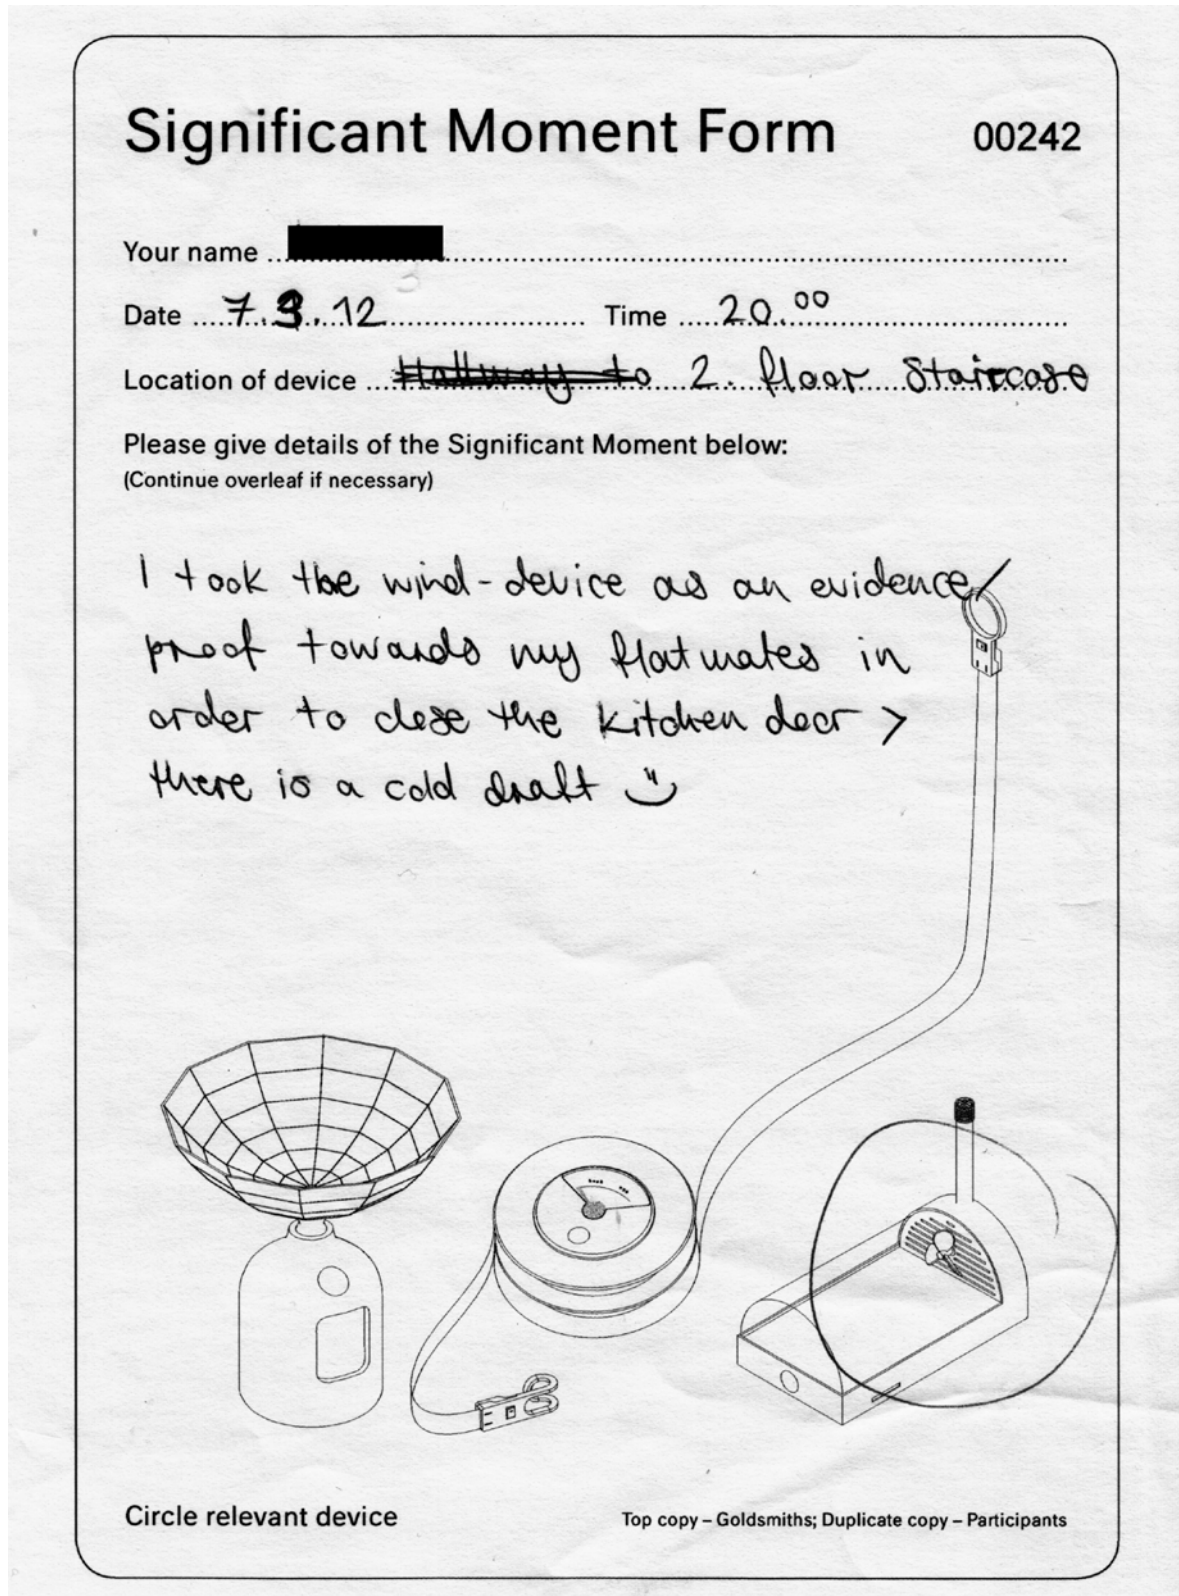 Significant Moment Form 00242
Your name
Date 7.3.12 Time 20.00
Location of device Hallway to 2. floor Staircase
Please give details of the Significant Moment below:
(Continue overleaf if necessary)
I took the wind-device as an evidence/
proof towards my flatmates in
order to close the kitchen door >
there is a cold draft
Circle relevant device
Top copy – Goldsmiths; Duplicate copy – Participants